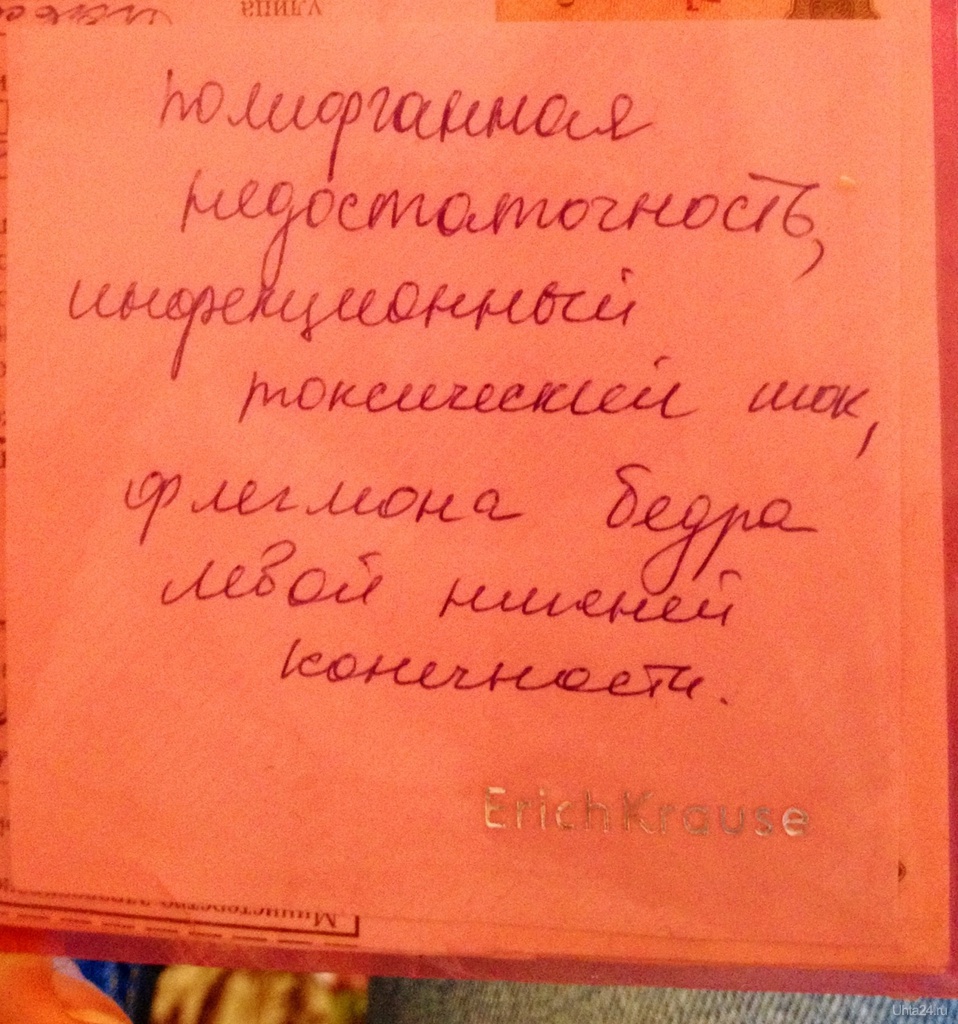 улица
полиорганная
недостаточность,
инфекционный
токсический шок,
флегмона бедра
левой нижней
конечности.
ErichKrause
Министерство здравоохранения
Uhta24.ru